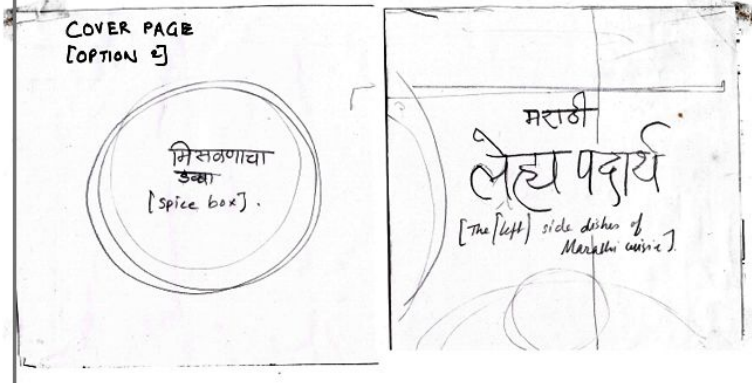 COVER PAGE
[OPTION 2]
मिसळणाचा
डब्बा
[spice box].
मराठी
लेह्य पदार्थ
[The [left] side dishes of
Marathi cuisine].